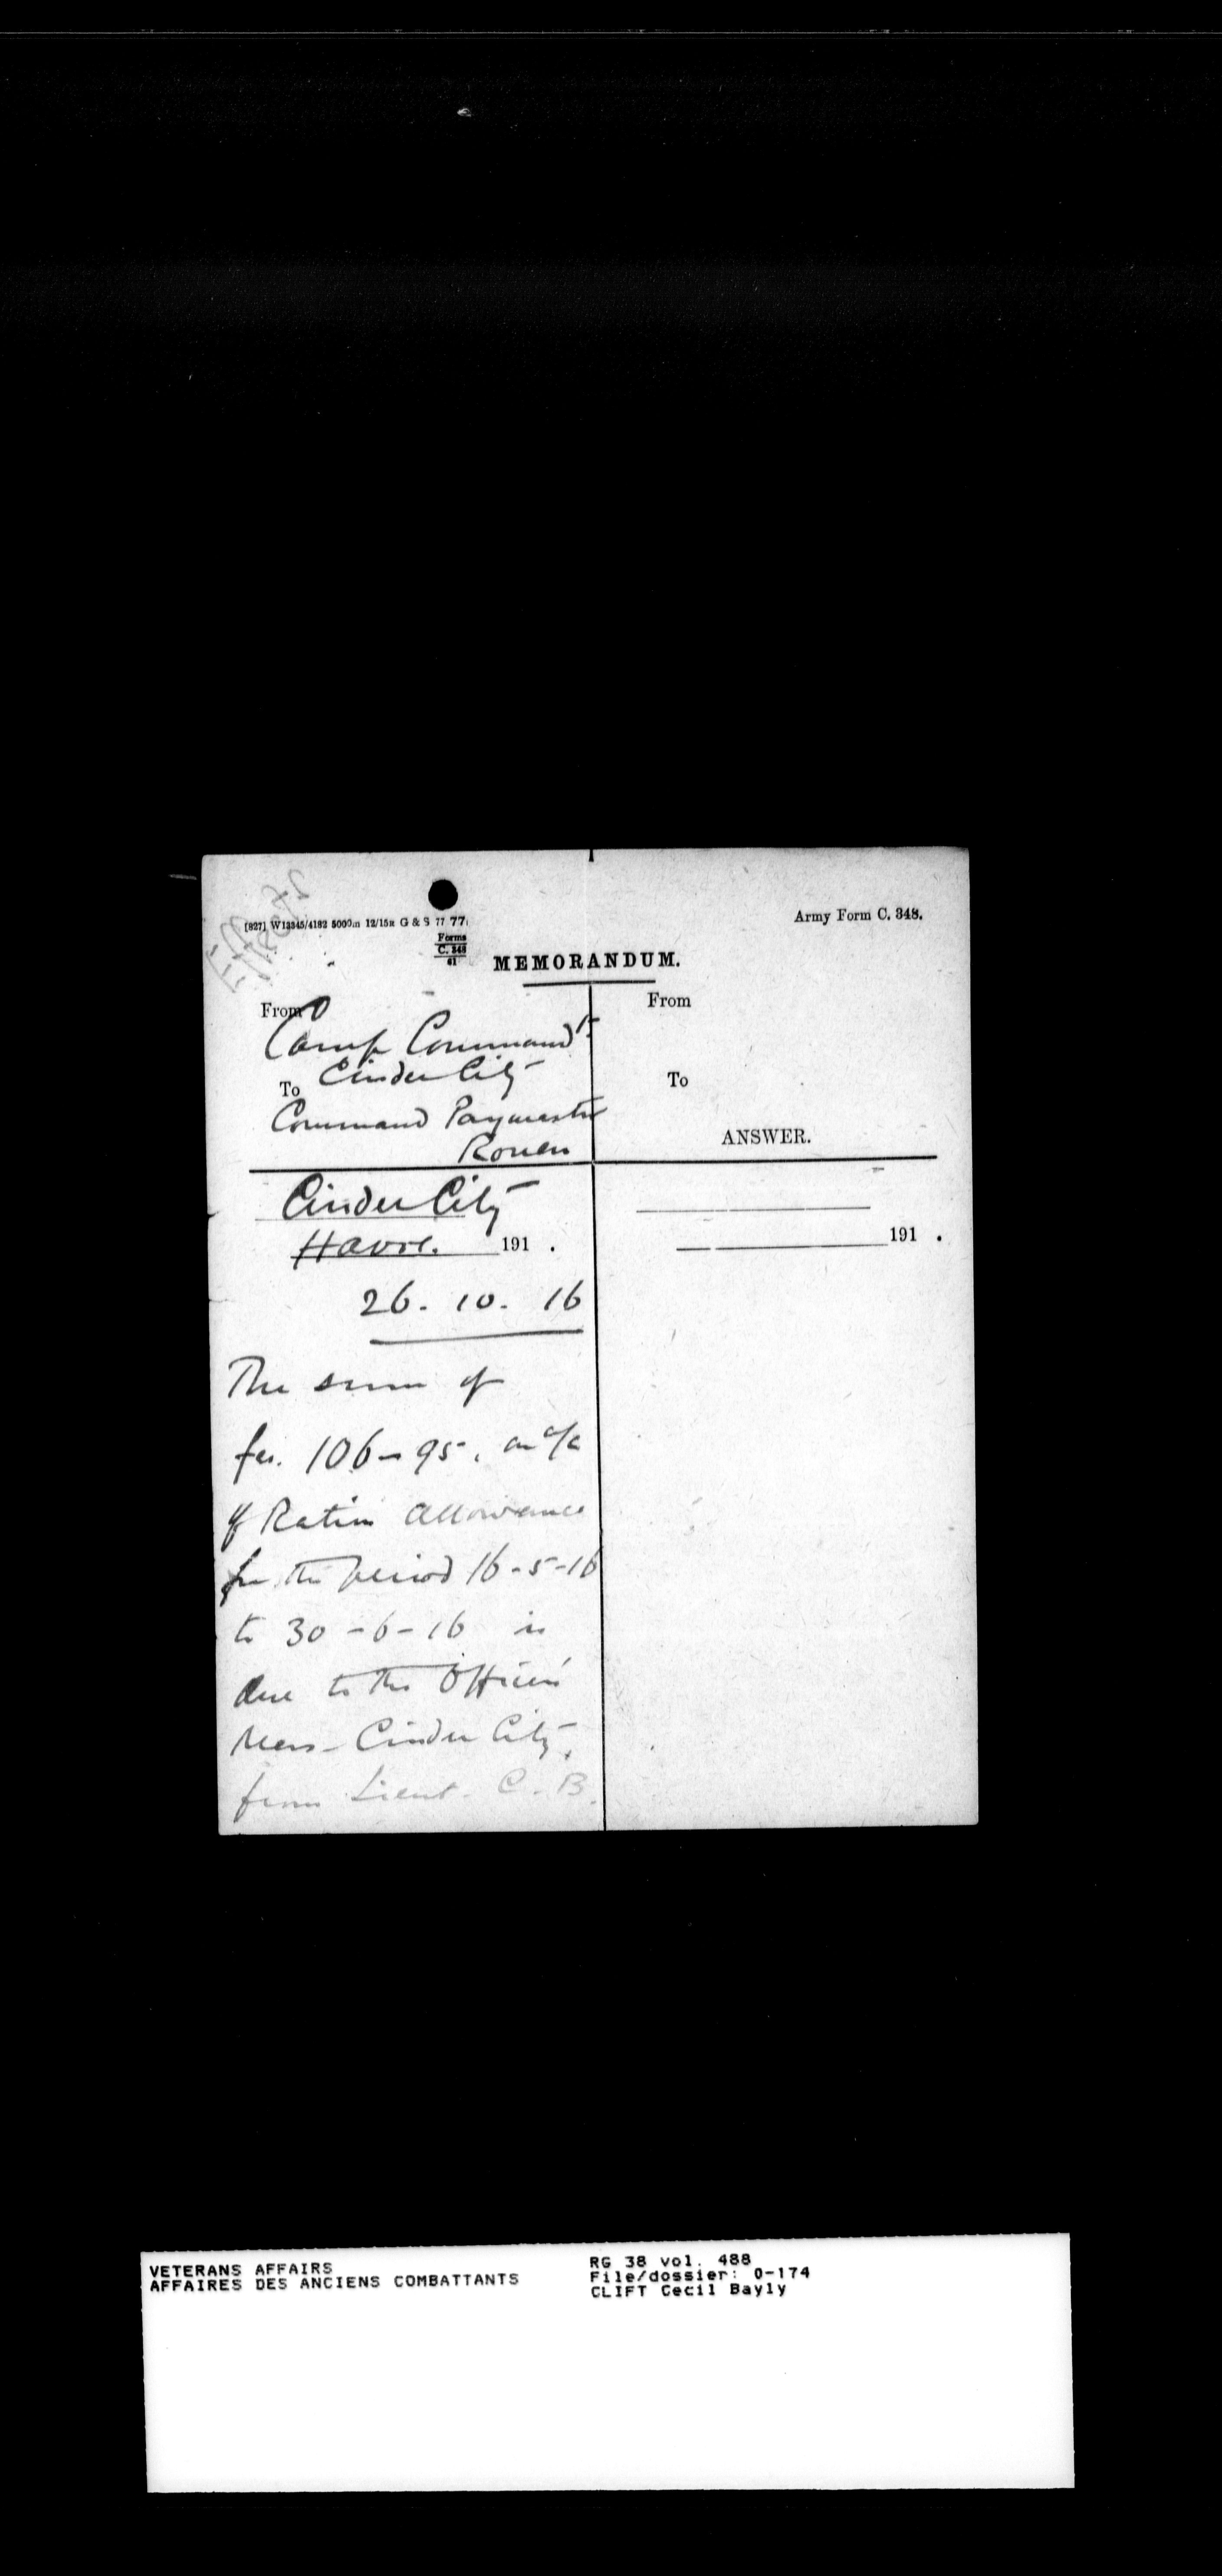 [827] W13345/4182 5000m 12/15R G & S 77 77
Forms
C. 348
61
Army Form C. 348.
MEMORANDUM.
From
Camp Commandt
To Cinder City
Command Paymaster
Rouen
From
To
ANSWER.
Cinder City
Havre. 191 .
26. 10. 16
191 .
The sum of
fcs. 106-95. on a/c
of Ration Allowance
for the period 16-5-16
to 30-6-16 is
due to the Officers'
Mess - Cinder City.
from Lieut. C. B.
VETERANS AFFAIRS
AFFAIRES DES ANCIENS COMBATTANTS
RG 38 vol. 488
File/dossier: 0-174
CLIFT Cecil Bayly